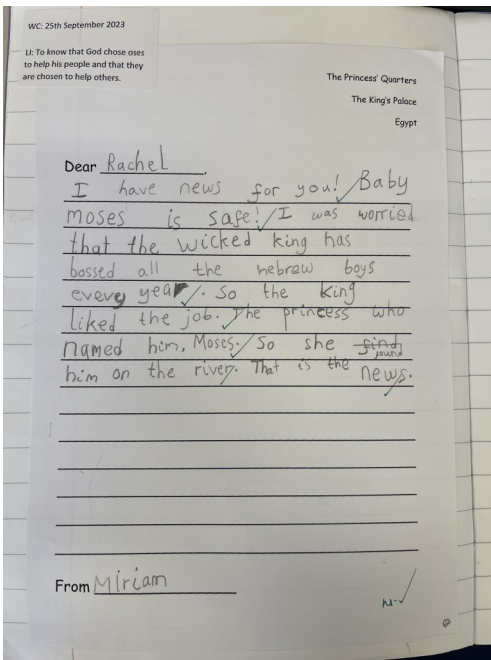 WC: 25th September 2023
LI: To know that God chose oses
to help his people and that they
are chosen to help others.
The Princess' Quarters
The King's Palace
Egypt
Dear Rachel,
I have news for you! Baby
moses is safe! I was worried
that the wicked king has
bossed all the hebrew boys
every year. So the king
liked the job. The princess who
named him, Moses. So she find found
him on the river. That is the
news.
From Miriam